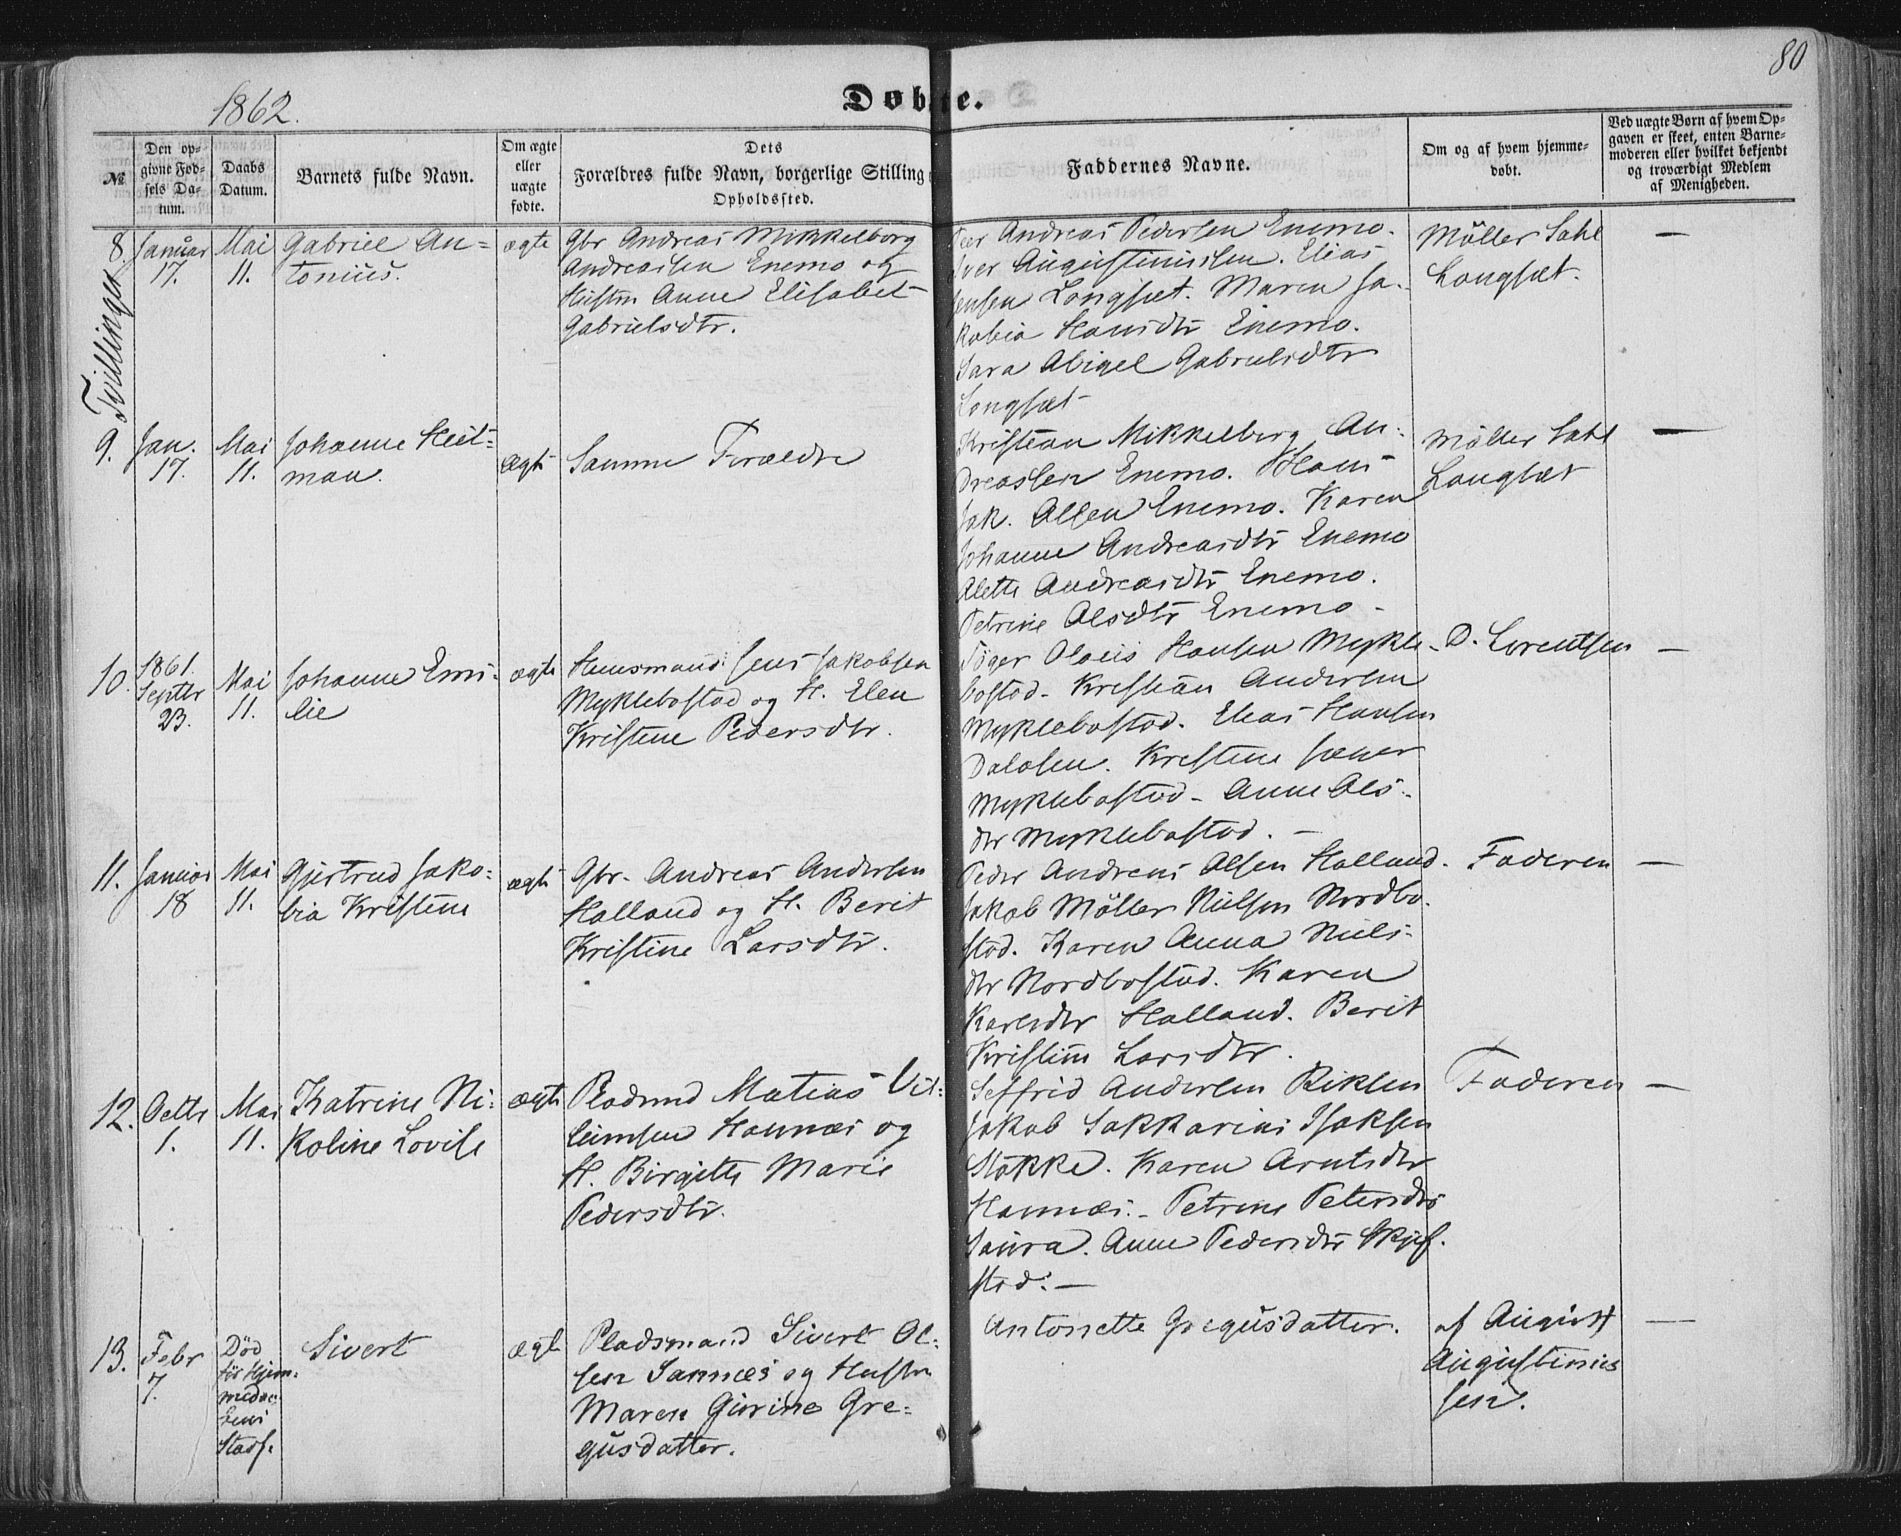 80
1862.
Døbte.
№
Den op-
givne Fød-
sels Da-
tum.
Daabs
Datum.
Barnets fulde Navn.
Om ægte
eller
uægte
fødte.
Dets
Forældres fulde Navn, borgerlige Stilling
Opholdssted.
Faddernes Navne.
Om og af hvem hjemme-
døbt.
Ved uægte Børn af hvem Op-
gaven er skeet, enten Barne-
moderen eller hvilket bekjendt
og troværdigt Medlem
af Menigheden.
Tvillinger
8.
Januar
17.
Mai
11.
Gabriel An-
tonius.
ægte
Gbr Andreas Mikkelborg
Andreassen Enemo og
Hustru Anne Elisabet
Gabrielsdtr.
Peer Andreas Pedersen Enemo.
Iver Augustinussen. Elias
Jensen Longset. Maren Ja-
kobia Hansdtr Enemo.
Sara Abigel Gabrielsdtr
Longset
Møller Dahl
Longset.
—
9.
Jan.
17.
Mai
11.
Johanne Heit-
man.
ægte
Samme Forældre
Kristian Mikkelborg An-
dreassen Enemo. Hans
Jak. Olsen Enemo. Karen
Johanne Andreasdtr Enemo
Alette Andreasdtr Enemo.
Petrine Olsdtr Enemo -
Møller Dahl
Longset
—
10.
1861.
Septbr
23.
Mai
11.
Johanne Emi-
lie
ægte
Huusmand Jens Jakobsen
Myklebostad og H. Elen
Kristine Pedersdtr.
Tøger Olaus Hansen Mykle-
bostad. Kristian Andersen
Myklebostad. Elias Hansen
Dalosen. Kristine Jæger
Myklebostad - Anne Ols-
dtr Myklebostad. —
D. Lorentsen
—
11.
Januar
18
Mai
11.
Gjertrud Jako-
bia Kristine
ægte
Gbr. Andreas Andersen
Halland og H. Berit
Kristine Larsdtr.
Peder Andreas Olsen Halland.
Jakob Møller Nielsen Nordbo-
stad. Karen Anna Niels-
dtr Nordbostad. Karen
Karlsdtr Halland. Berit
Kristine Larsdtr.
Faderen
—
12.
Octbr
1.
Mai
11.
Katrine Ni-
koline Lovise
ægte
Pladsmd Matias Vil-
leimsen Hannæs og
H. Birgitte Marie
Pedersdtr.
Seffrid Andersen Riksen
Jakob Sakkarias Isaksen
Stokke. Karen Arntsdtr
Hannæs. - Petrine Petersdtr
Saura. Anne Pedersdtr Skjef-
stad. —
Faderen
—
13.
Febr
7.
Død
før Hjem-
medaa-
bens
Stadf.
Sivert
ægte
Pladsmand Sivert Ol-
sen Sannæs og Hustru
Maren Gurine Gre-
gusdatter.
Antonette Gregusdatter.
af August
Augustinus
sen.
—